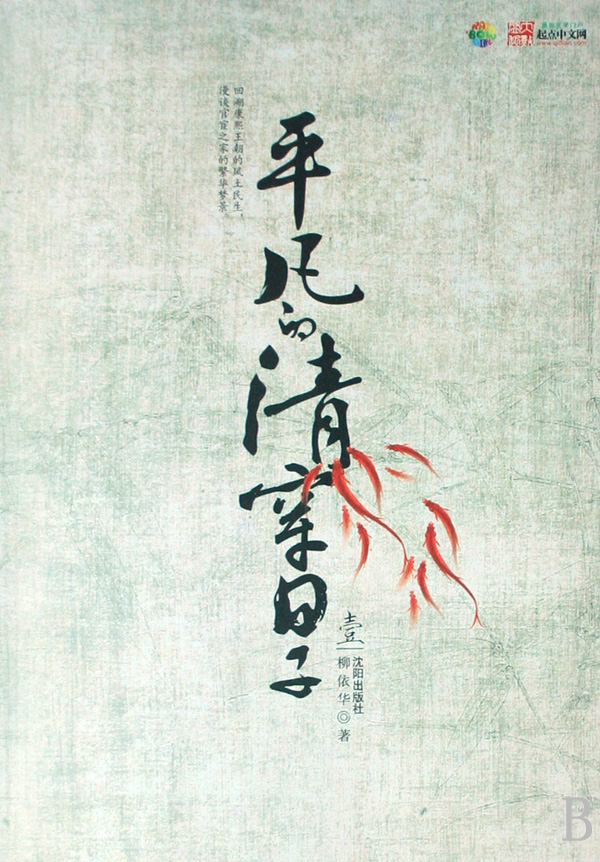 起点中文网
www.qidian.com
回溯康熙王朝的风土民生，
漫谈官宦之家的繁华梦景。
平凡的清穿日子
壹
沈阳出版社
柳依华◎著
B